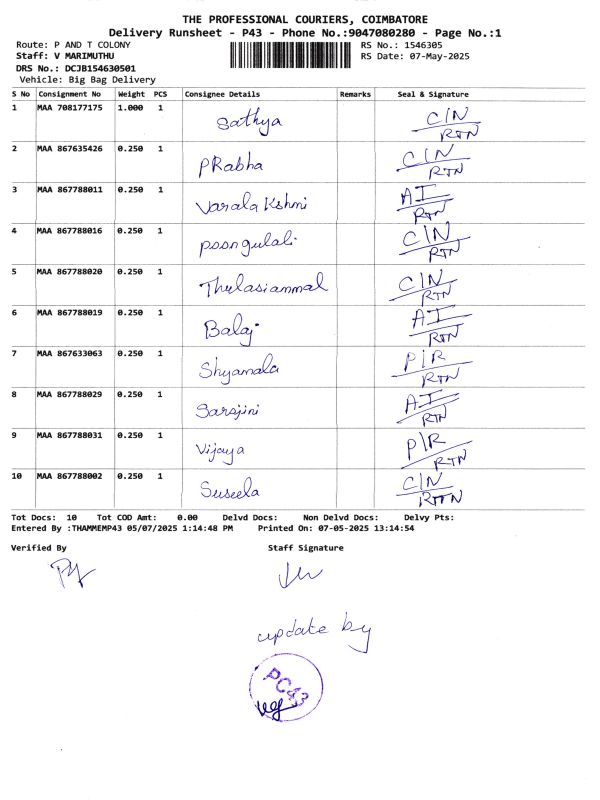 THE PROFESSIONAL COURIERS, COIMBATORE
Delivery Runsheet - P43 - Phone No.:9047080280 - Page No.:1
Route: P AND T COLONY RS No.: 1546305
Staff: V MARIMUTHU RS Date: 07-May-2025
DRS No.: DCJB154630501
Vehicle: Big Bag Delivery
S No Consignment No Weight PCS Consignee Details Remarks Seal & Signature
1 MAA 708177175 1.000 1 Sathya C/N RTN
2 MAA 867635426 0.250 1 PRabha C/N RTN
3 MAA 867788011 0.250 1 VaralaKshmi AI RTN
4 MAA 867788016 0.250 1 poongulali C/N RTN
5 MAA 867788020 0.250 1 Thulasiammal C/N RTN
6 MAA 867788019 0.250 1 Balaji AI RTN
7 MAA 867633063 0.250 1 Shyamala P/R RTN
8 MAA 867788029 0.250 1 Sarojini AI RTN
9 MAA 867788031 0.250 1 Vijaya P/R RTN
10 MAA 867788002 0.250 1 Suseela C/N RTN
Tot Docs: 10 Tot COD Amt: 0.00 Delvd Docs: Non Delvd Docs: Delvy Pts:
Entered By :THAMMEMP43 05/07/2025 1:14:48 PM Printed On: 07-05-2025 13:14:54
Verified By Staff Signature
update by
PC43